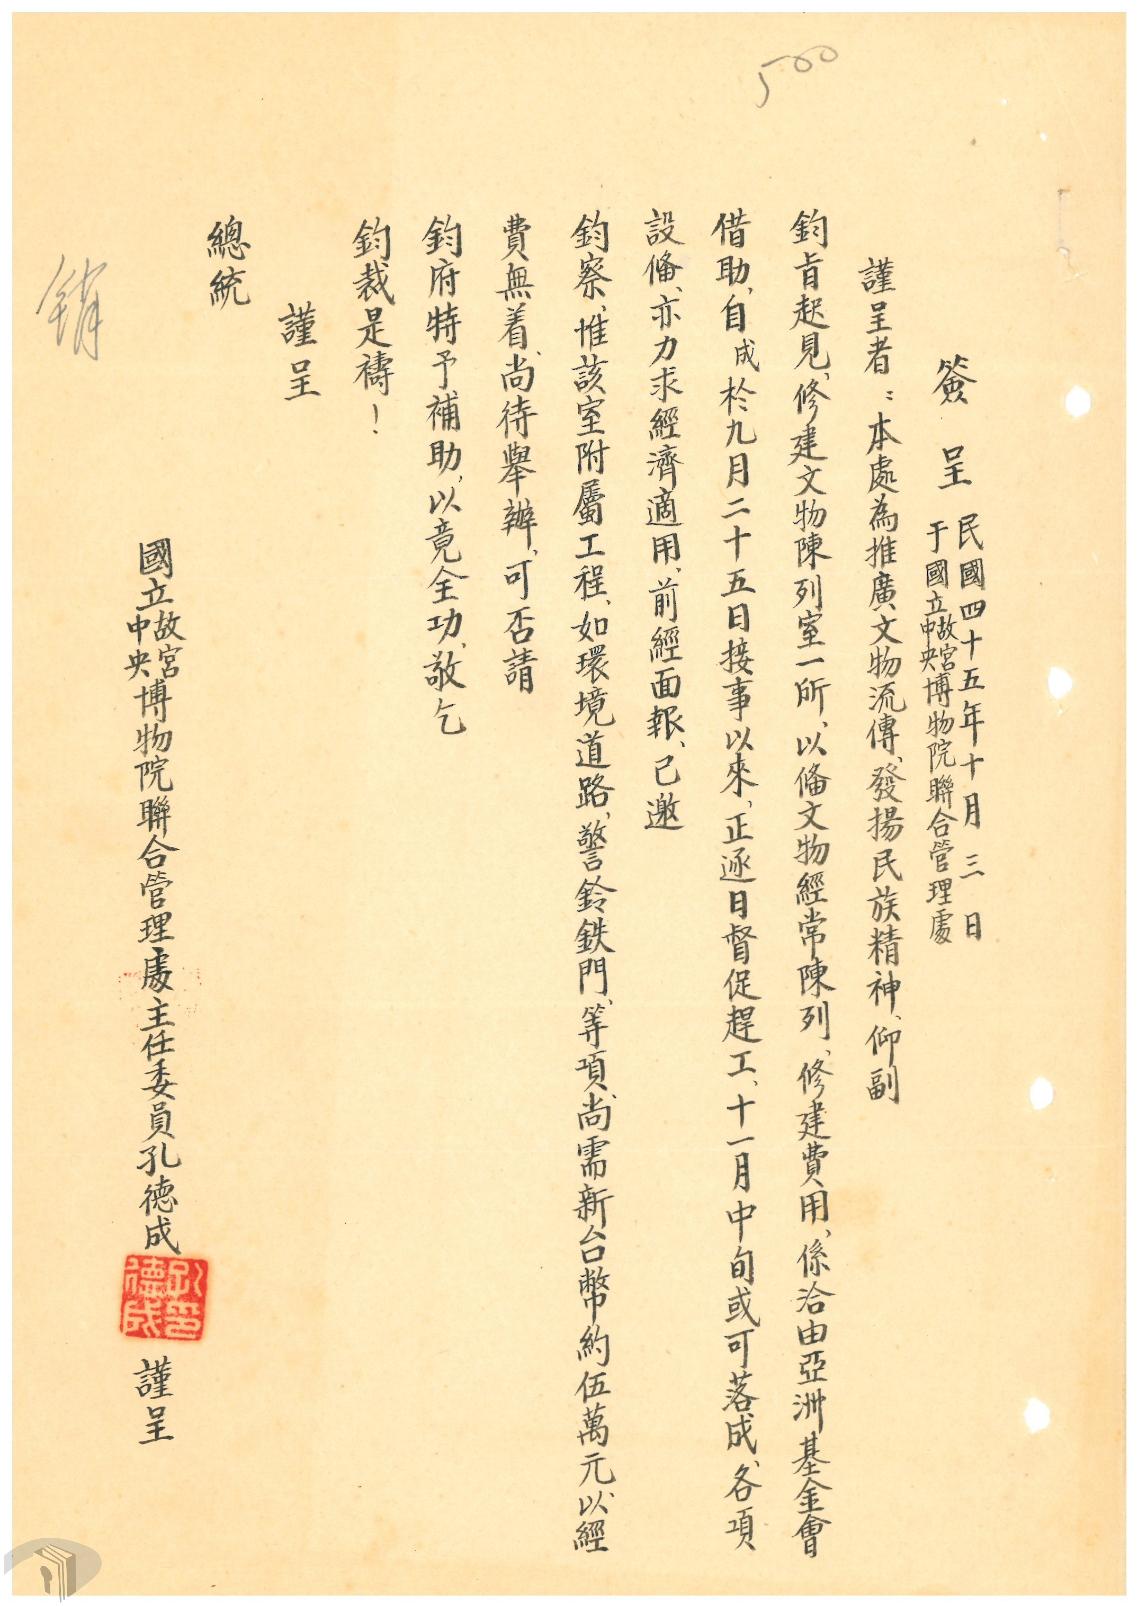 500
簽呈 民國四十五年十月三日
于國立故宮中央博物院聯合管理處
謹呈者：本處為推廣文物流傳、發揚民族精神、仰副
鈞旨起見、修建文物陳列室一所、以備文物經常陳列、修建費用、係洽由亞洲基金會
借助、自成於九月二十五日接事以來、正逐日督促趕工、十一月中旬或可落成、各項
設備、亦力求經濟適用、前經面報、已邀
鈞察、惟該室附屬工程、如環境道路、警鈴鉄門、等項、尚需新台幣約伍萬元、以經
費無着、尚待舉辦、可否請
鈞府特予補助、以竟全功、敬乞
鈞裁是禱！
謹呈
總統
國立故宮中央博物院聯合管理處主任委員孔德成 謹呈
孔德成印